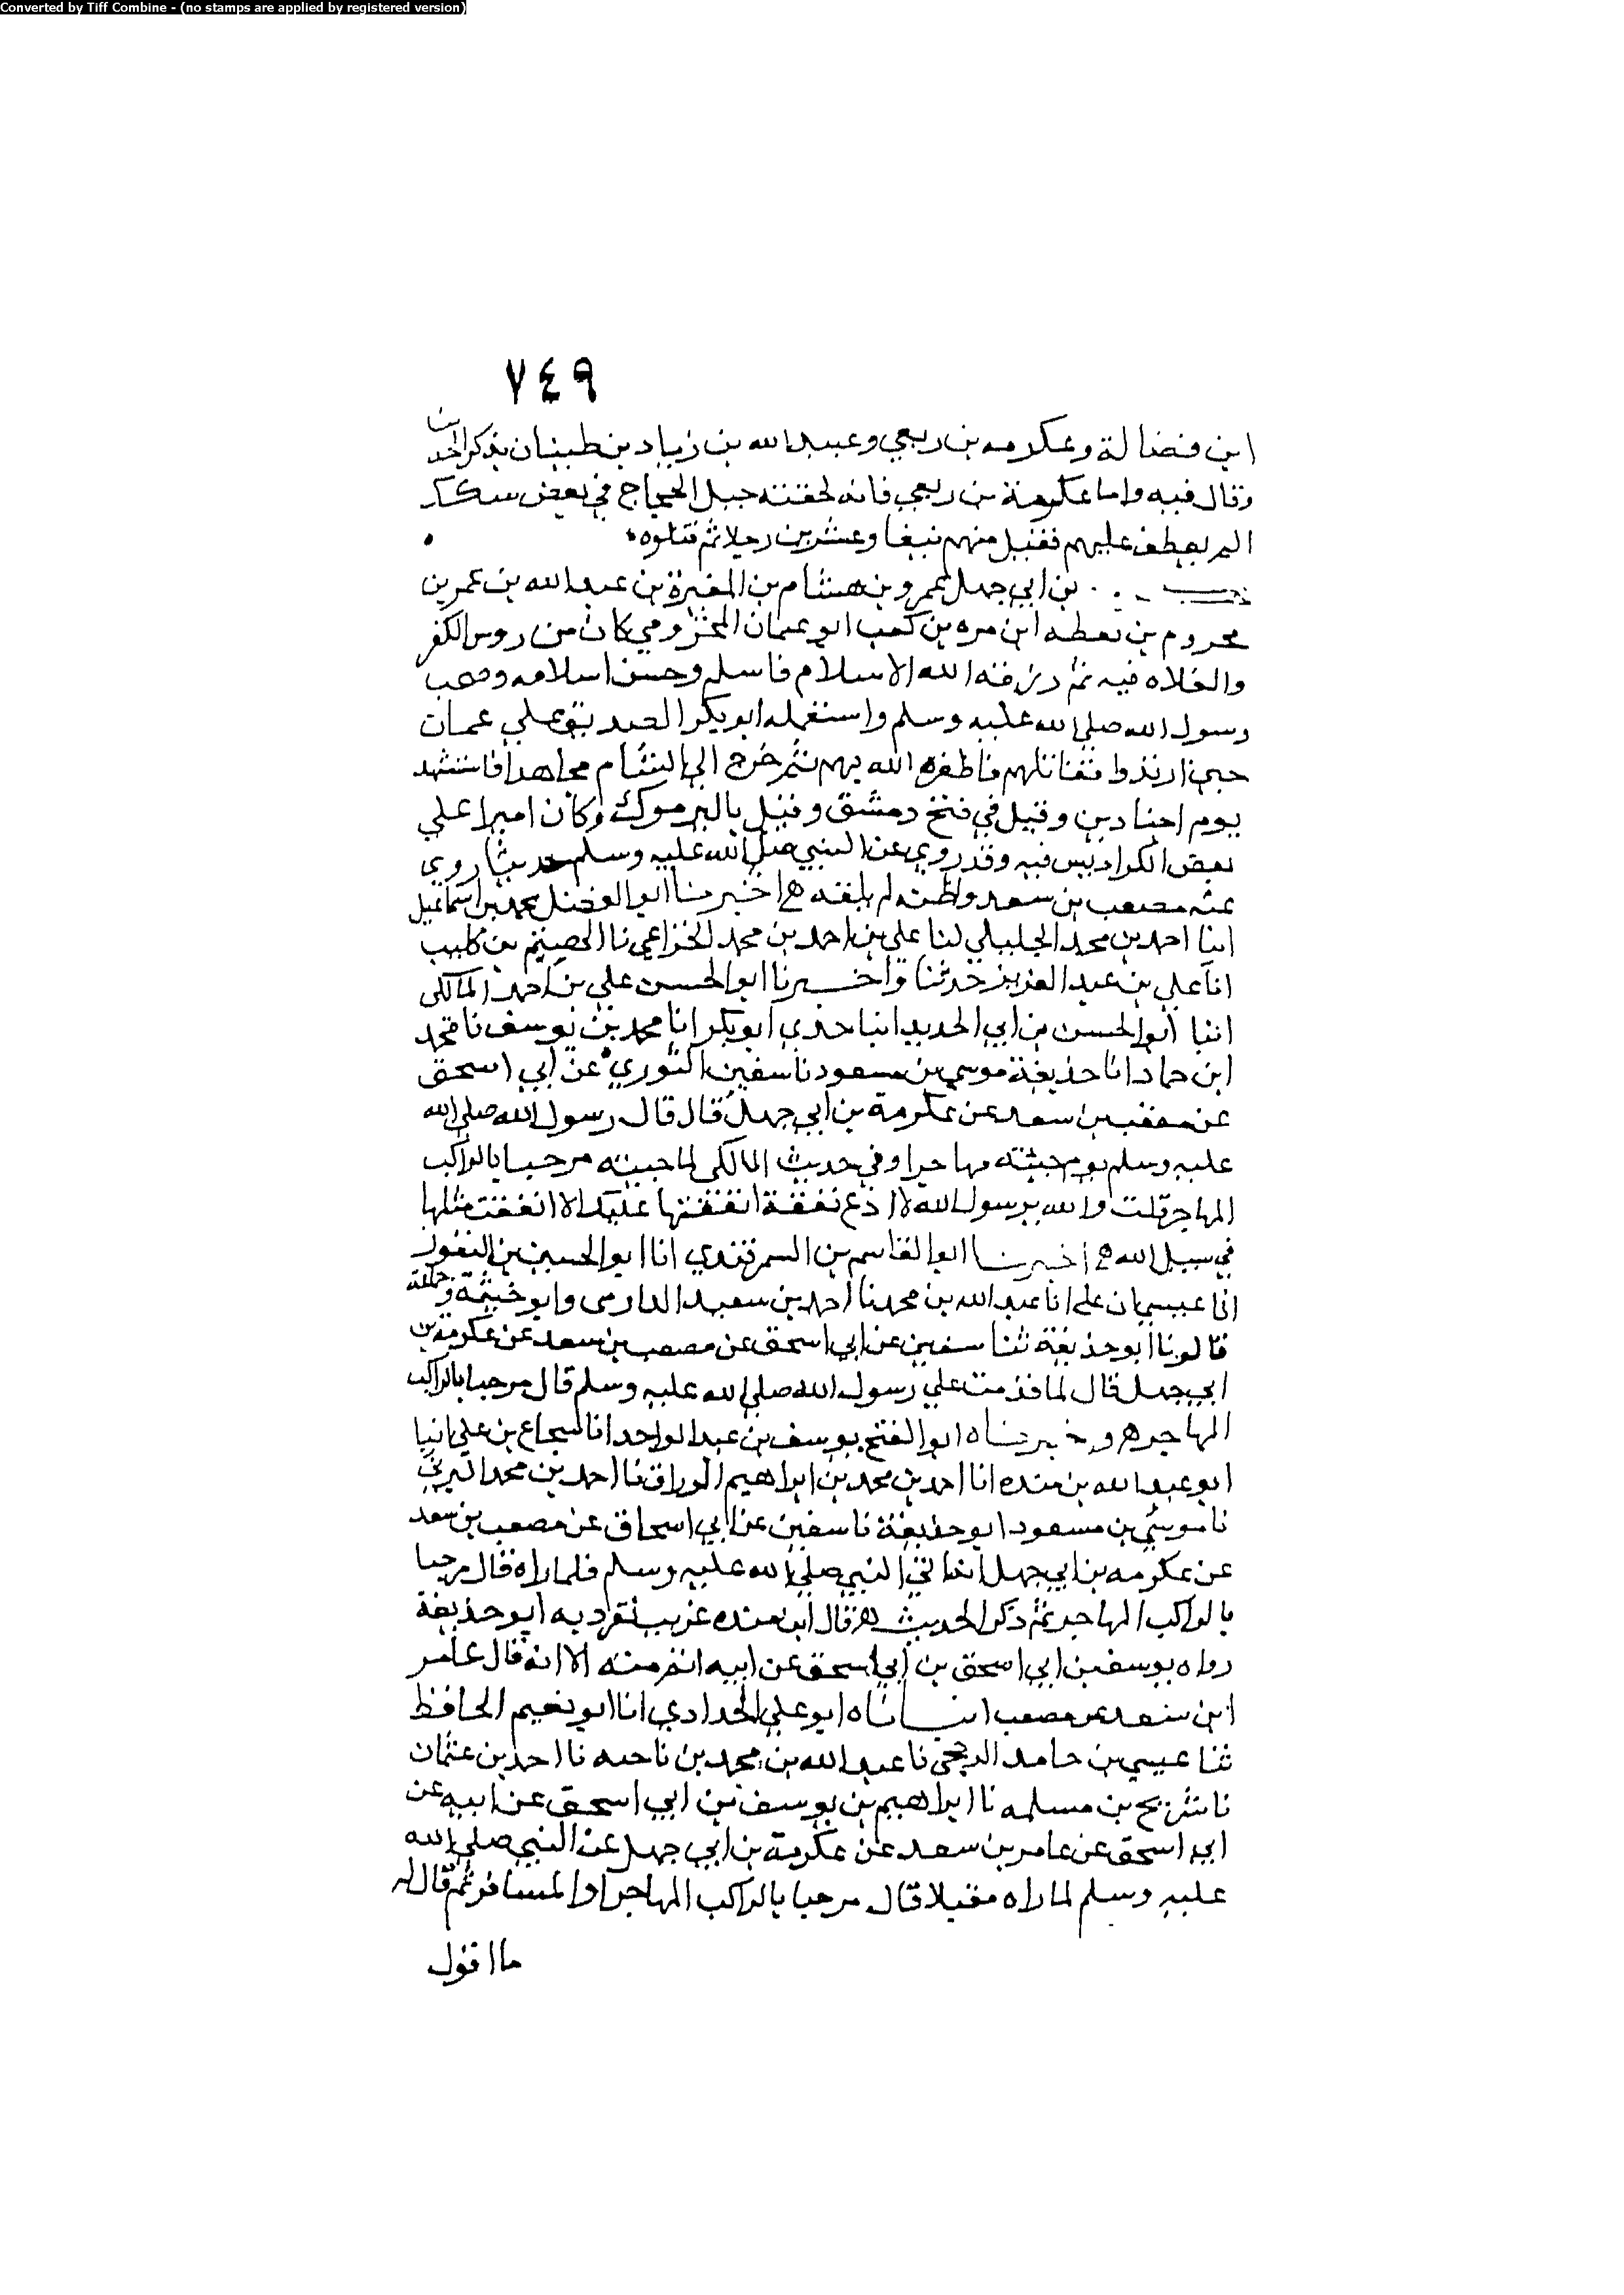 Converted by Tiff Combine - (no stamps are applied by registered version)
٧٤٩
ابن فضالة وعكرمه بن ربعي وعبيد الله بن زياد بن ظبيان
وقال فيه واما عكرمة بن ربعي فانه لحقته خيل الحجاج في بعض سكك
فعطف عليهم فقتل منهم نيفا وعشرين رجلا ثم قتلوه
بن ابي جهل عمرو بن هشام بن المغيرة بن عبد الله بن عمر بن
مخروم بن يقظه ابن مره بن كعب ابو عثمان المخزومي كان من روس الكفر
والغلاه فيه ثم رزقه الله الاسلام فاسلم وحسن اسلامه وصحب
رسول الله صلي الله عليه وسلم واستعمله ابو بكر الصديق علي عمان
حين ارتدوا فقاتلهم فاظفره الله بهم ثم خرج الي الشام مجاهدا فاستشهد
يوم اجنادين وقيل في فتح دمشق وقيل باليرموك وكان اميرا علي
بعض الكراديس فيه وقد روي عن النبي صلي الله عليه وسلم حديثا روي
عنه مصعب بن سعد واظنه لم يلقه اخبرنا ابو الفضل محمد بن اسماعيل
ابنا احمد بن محمد الخليلي انا علي بن احمد بن محمد الخزاعي نا الهيثم بن كليب
انا علي بن عبد العزيز حدثنا واخبرنا ابو الحسن علي بن احمد المالكي
انبا ابو الحسن بن ابي الحديد انبا جدي ابو بكر انا محمد بن يوسف نا محمد
ابن حماد انا حذيفة موسي بن مسعود نا سفين الثوري عن ابي اسحق
عن مصعب بن سعد عن عكرمة بن ابي جهل قال قال رسول الله صلي الله
عليه وسلم يوم جئته مهاجرا وفي حديث المالكي لما جيته مرحبا بالراكب
المهاجر قلت والله يرسول الله لا ادع نفقة انفقتها عليك الا انفقت مثلها
في سبيل الله اخبرنا ابو القاسم بن السمرقندي انا ابو الحسين بن النقور
انا عيسي بن علي انا عبد الله بن محمد نا احمد بن سعيد الدارمي وابو خيثمة و
قالو نا ابو حذيفة ثنا سفين عن ابي اسحق عن مصعب بن سعد عن عكرمة بن
ابي جهل قال لما قدمت علي رسول الله صلي الله عليه وسلم قال مرحبا بالراكب
المهاجر واخبرناه ابو الفتح يوسف بن عبد الواحد انا شجاع بن علي انبا
ابو عبد الله بن منده انا احمد بن محمد بن ابراهيم الوراق نا احمد بن محمد البرتي
نا موسي بن مسعود ابو حذيفة نا سفين عن ابي اسحاق عن مصعب بن سعد
عن عكرمه بن ابي جهل انه اتي النبي صلي الله عليه وسلم فلما راه قال مرحبا
بالراكب المهاجر ثم ذكر الحديث قال ابن منده غريب تفرد به ابو حذيفة
رواه يوسف بن ابي اسحق بن ابي اسحق عن ابيه اتم منه الا انه قال عامر
ابن سعد عن مصعب انباناه ابو علي الحدادي انا ابو نعيم الحافظ
ثنا عيسي بن حامد الرخجي نا عبد الله بن محمد بن ناجيه نا احمد بن عثمان
نا شريح بن مسلمه نا ابراهيم بن يوسف بن ابي اسحق عن ابيه عن
ابي اسحق عن عامر بن سعد عن عكرمة بن ابي جهل عن النبي صلي الله
عليه وسلم لما راه مقبلا قال مرحبا بالراكب المهاجر او المسافر ثم قال له
ما اقول